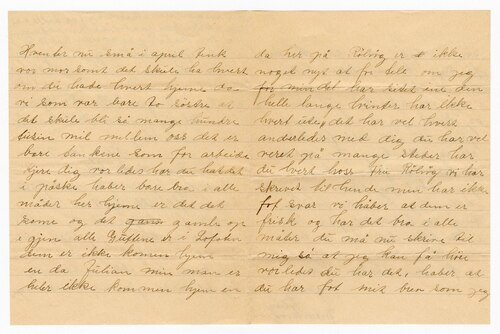 Hventer nu små i april tenk
vor morsomt det skule ha hvert
om du hade hvert hjeme da
vi som var bare to söstre at
det skule bli så mange hundre
tusin mil mellem oss det er
bare tankene som får arbeide
kjere dig vorledes har du hat det
i påske håber bare bra i alle
måder her hjeme er det det
same og det gamle op
i gjen alle Guttene er i Lofoten
dem er ikke komen hjem
en da Julian min man er
heler ikke kommen hjem en
da her på Rölvåg er ikke
noget nyt at for telle om jeg
for min det har sitet ine den
hele lange vinder har ikke
hvert ute, det har vel hvert
anderledes med dig du har vel
veret på mange steder har
du hvert hoss Fru Rölvåg vi har
skrevet til hende men har ikke
fot svar vi håber at dem er
frisk og har det bra i alle
måter du må nu skrive til
mig så at jeg kan få höre
vorledes du har det, håber at
du har fot mit brev som jeg